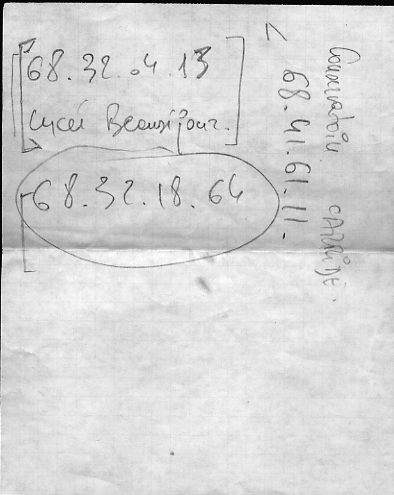 68.32.04.13
Lycée Beauséjour.
68.32.18.64
Conservatoire
68.41.61.11.